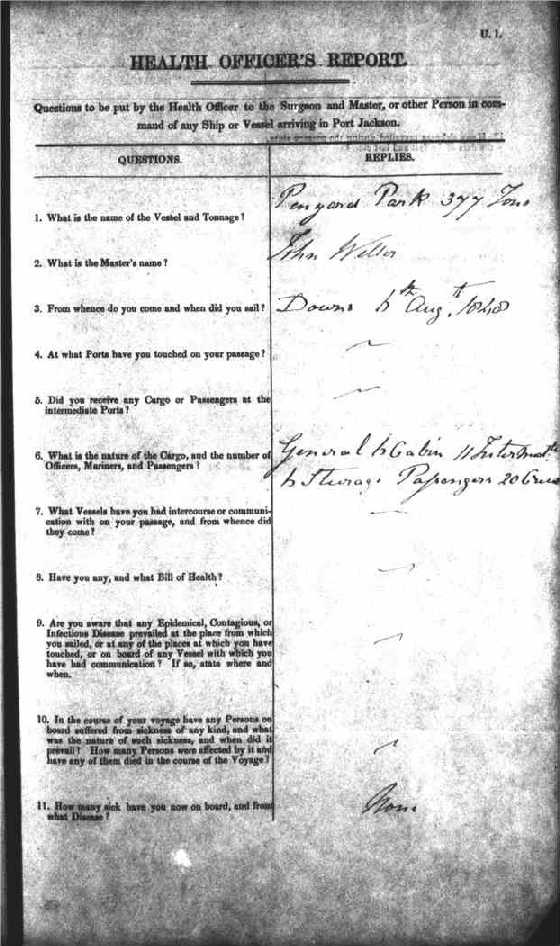 U. 1.
HEALTH OFFICER'S REPORT.
Questions to be put by the Health Officer to the Surgeon and Master, or other Person in com-
mand of any Ship or Vessel arriving in Port Jackson.
QUESTIONS.
REPLIES.
1. What is the name of the Vessel and Tonnage?
Penyard Park 377 Tons
2. What is the Master's name?
John Weller
3. From whence do you come and when did you sail?
Downs 6th Aug.th 1848
4. At what Ports have you touched on your passage?
5. Did you receive any Cargo or Passengers at the
intermediate Ports?
6. What is the nature of the Cargo, and the number of
Officers, Mariners, and Passengers?
General 6 Cabin 11
6 Passengers 20 Crew
7. What Vessels have you had intercourse or communi-
cation with on your passage, and from whence did
they come?
8. Have you any, and what Bill of Health?
9. Are you aware that any Epidemical, Contagious, or
Infectious Disease prevailed at the place from which
you sailed, or at any of the places at which you have
touched, or on board of any Vessel with which you
have had communication? If so, state where and
when.
10. In the course of your voyage have any Persons on
board suffered from sickness of any kind, and what
was the nature of such sickness, and when did it
prevail? How many Persons were affected by it and
have any of them died in the course of the Voyage?
11. How many sick have you now on board, and from
what Disease?
None